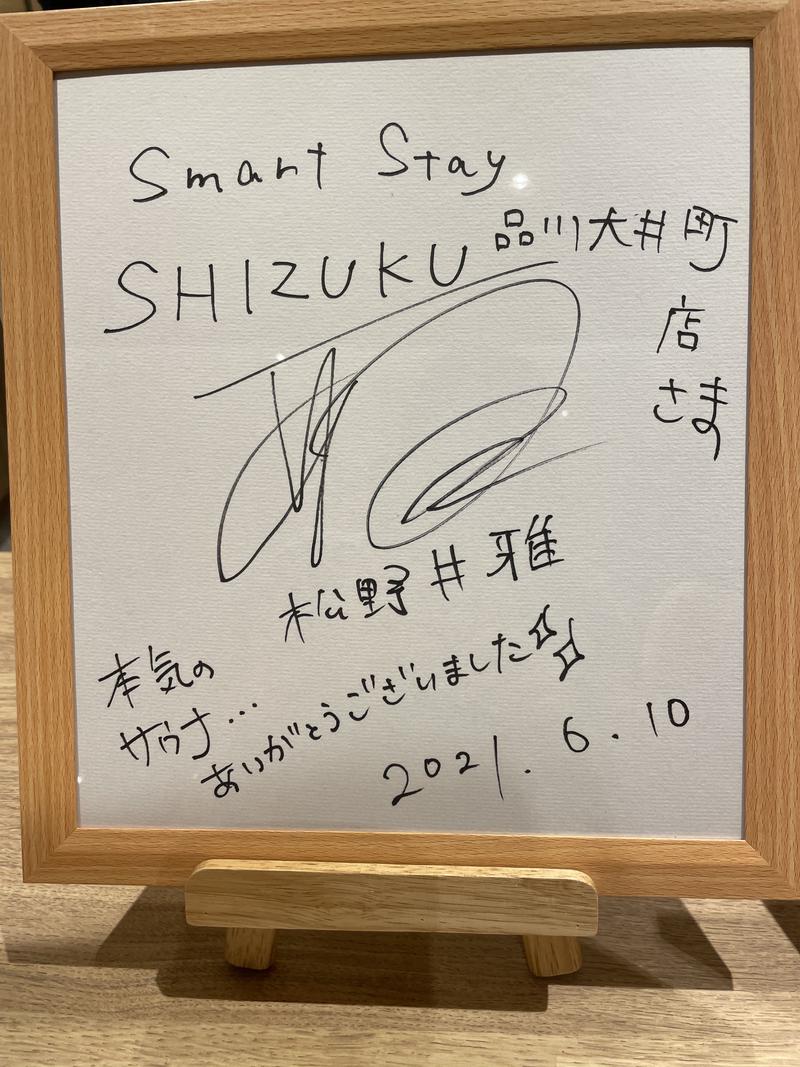 Smart Stay
SHIZUKU 品川大井町
店
さま
松野井 雅
本気の
サウナ…
ありがとうございました
2021.6.10